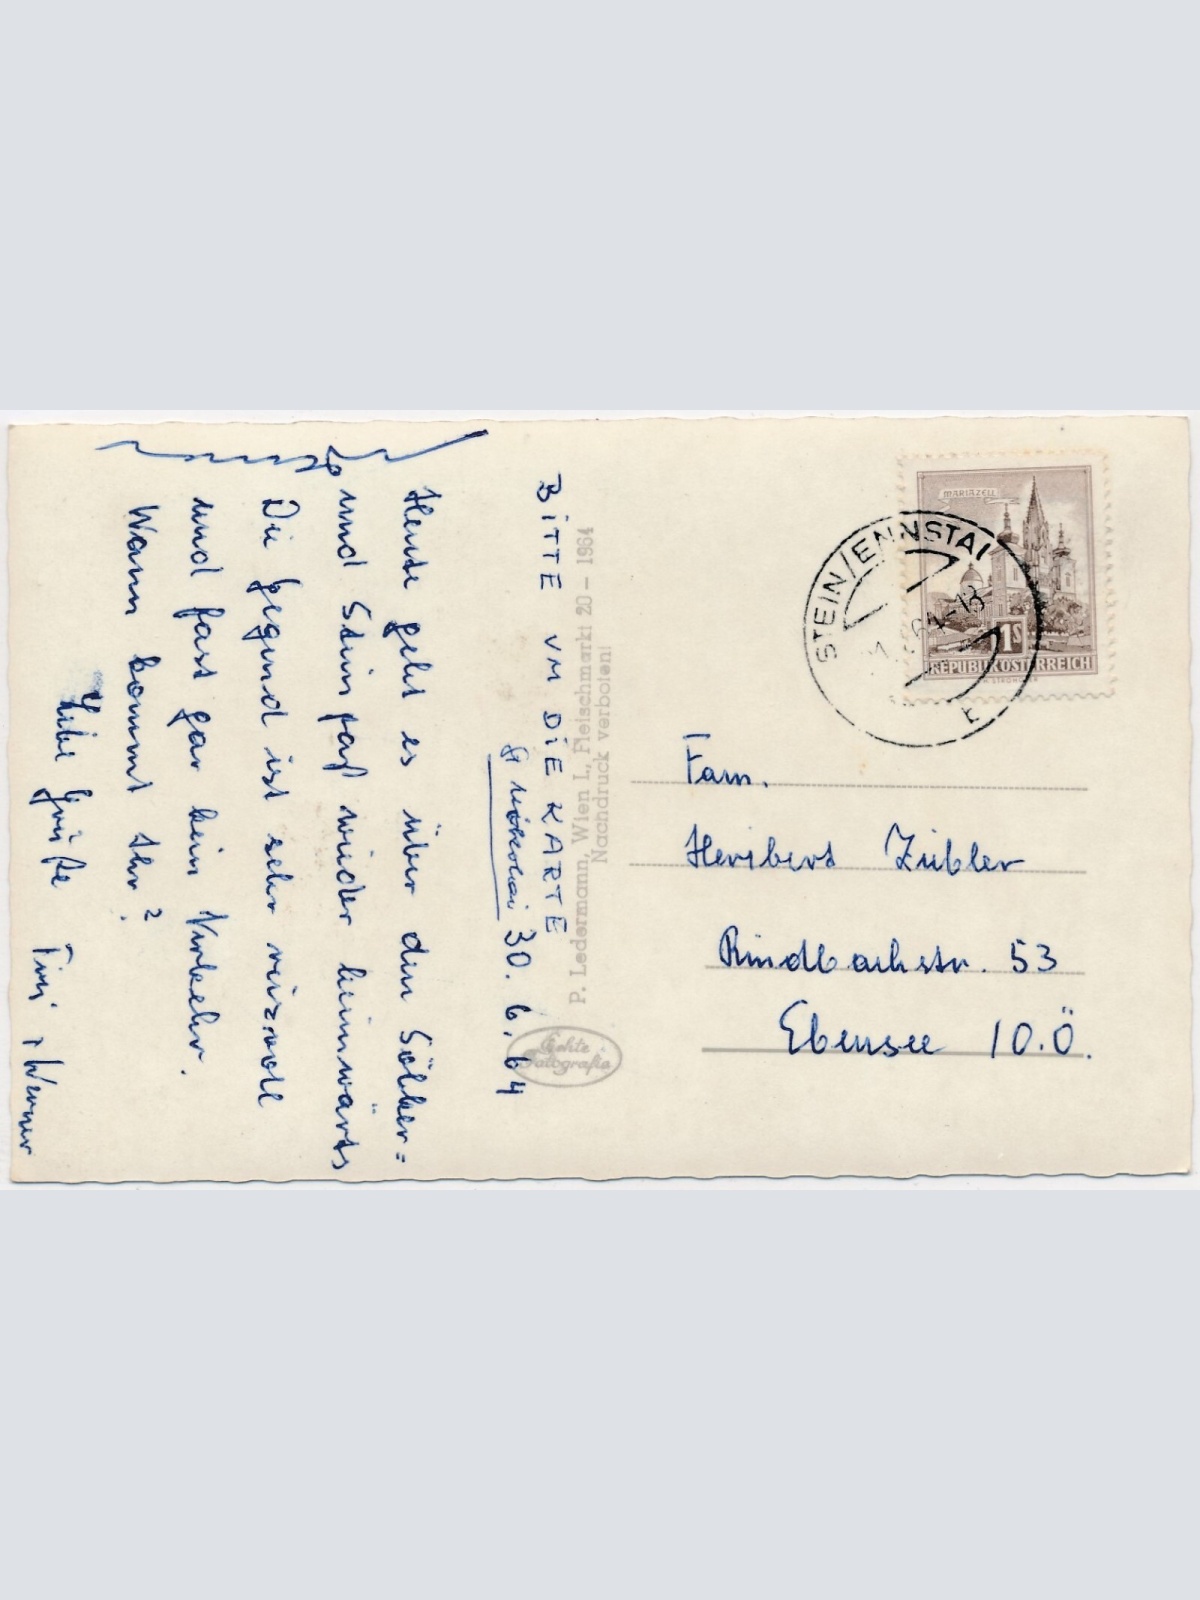 BITTE UM DIE KARTE
St. Nikolai 30. 6. 64
Heute geht es über den Sölker=
und Steinpaß wieder heimwärts
Die Gegend ist sehr reizvoll
und fast gar kein Verkehr.
Wann kommt Ihr?
Liebe Grüße
Werner
P. Ledermann, Wien I., Fleischmarkt 20 – 1964
Nachdruck verboten!
Echte
Fotografie
MARIAZELL
1S
REPUBLIK ÖSTERREICH
STEIN/ENNSTAL
64-18
E
Fam.
Heribert Zübler
Rindbachstr. 53
Ebensee 10. O.Ö.